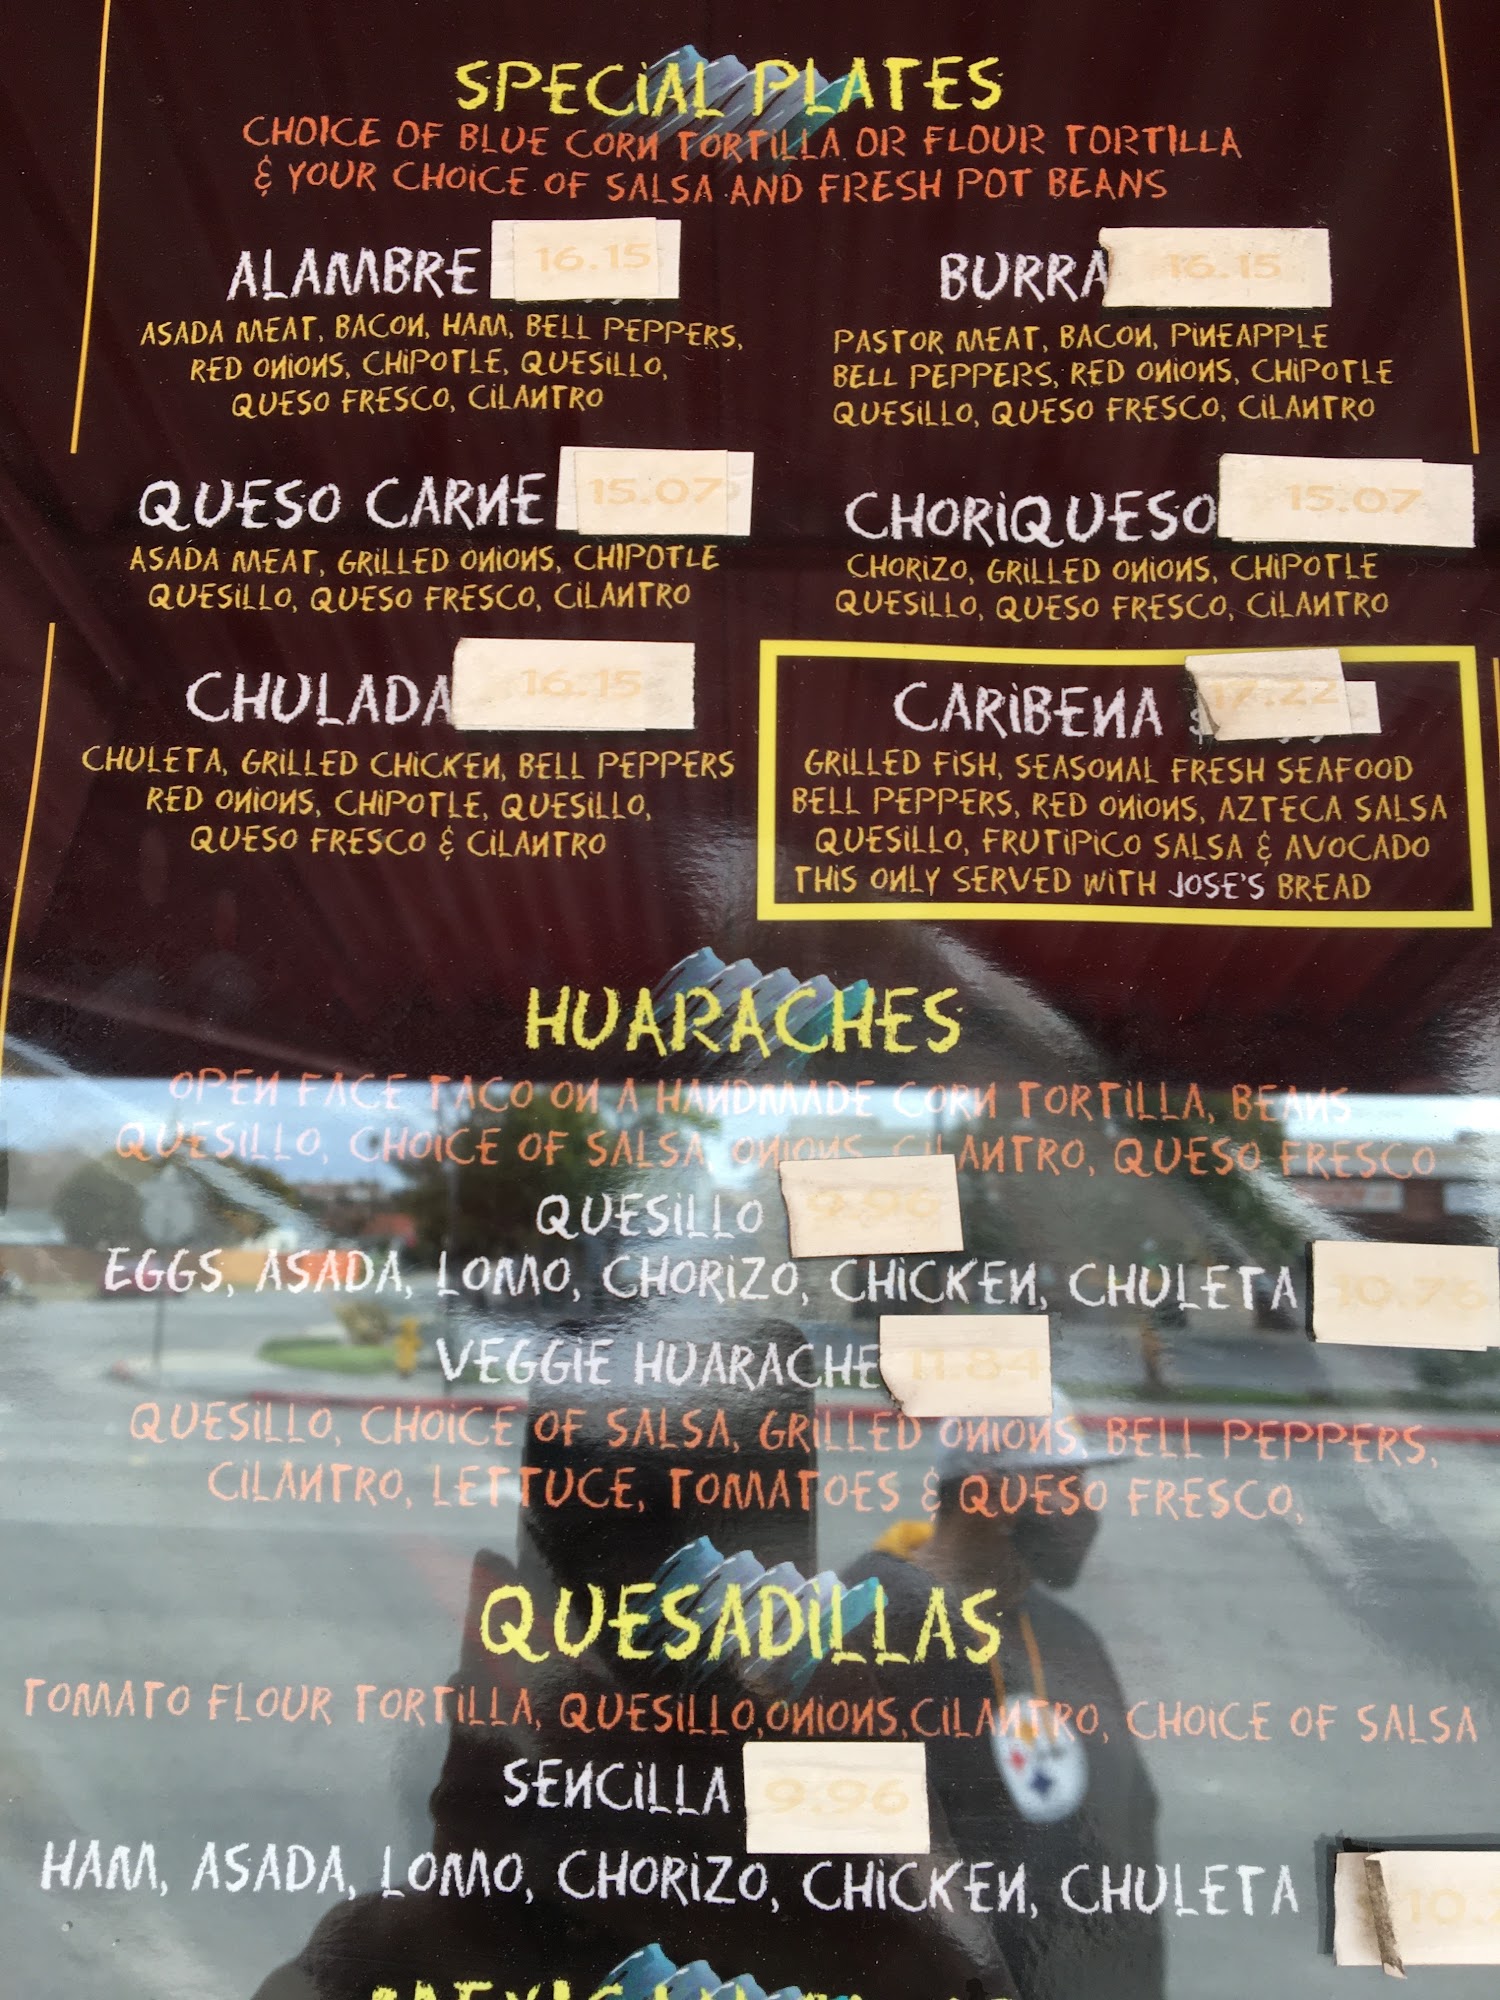 SPECIAL PLATES
CHOICE OF BLUE CORN TORTILLA OR FLOUR TORTILLA
& YOUR CHOICE OF SALSA AND FRESH POT BEANS
ALAMBRE 16.15
ASADA MEAT, BACON, HAM, BELL PEPPERS,
RED ONIONS, CHIPOTLE, QUESILLO,
QUESO FRESCO, CILANTRO
BURRA 16.15
PASTOR MEAT, BACON, PINEAPPLE
BELL PEPPERS, RED ONIONS, CHIPOTLE
QUESILLO, QUESO FRESCO, CILANTRO
QUESO CARNE 15.07
ASADA MEAT, GRILLED ONIONS, CHIPOTLE
QUESILLO, QUESO FRESCO, CILANTRO
CHORIQUESO 15.07
CHORIZO, GRILLED ONIONS, CHIPOTLE
QUESILLO, QUESO FRESCO, CILANTRO
CHULADA 16.15
CHULETA, GRILLED CHICKEN, BELL PEPPERS
RED ONIONS, CHIPOTLE, QUESILLO,
QUESO FRESCO & CILANTRO
CARIBENA $17.22
GRILLED FISH, SEASONAL FRESH SEAFOOD
BELL PEPPERS, RED ONIONS, AZTECA SALSA
QUESILLO, FRUTIPICO SALSA & AVOCADO
THIS ONLY SERVED WITH JOSE'S BREAD
HUARACHES
OPEN FACE TACO ON A HANDMADE CORN TORTILLA, BEANS
QUESILLO, CHOICE OF SALSA, ONIONS, CILANTRO, QUESO FRESCO
QUESILLO 9.96
EGGS, ASADA, LOMO, CHORIZO, CHICKEN, CHULETA 10.76
VEGGIE HUARACHE 11.84
QUESILLO, CHOICE OF SALSA, GRILLED ONIONS, BELL PEPPERS,
CILANTRO, LETTUCE, TOMATOES & QUESO FRESCO,
QUESADILLAS
TOMATO FLOUR TORTILLA, QUESILLO,ONIONS,CILANTRO, CHOICE OF SALSA
SENCILLA 9.96
HAM, ASADA, LOMO, CHORIZO, CHICKEN, CHULETA